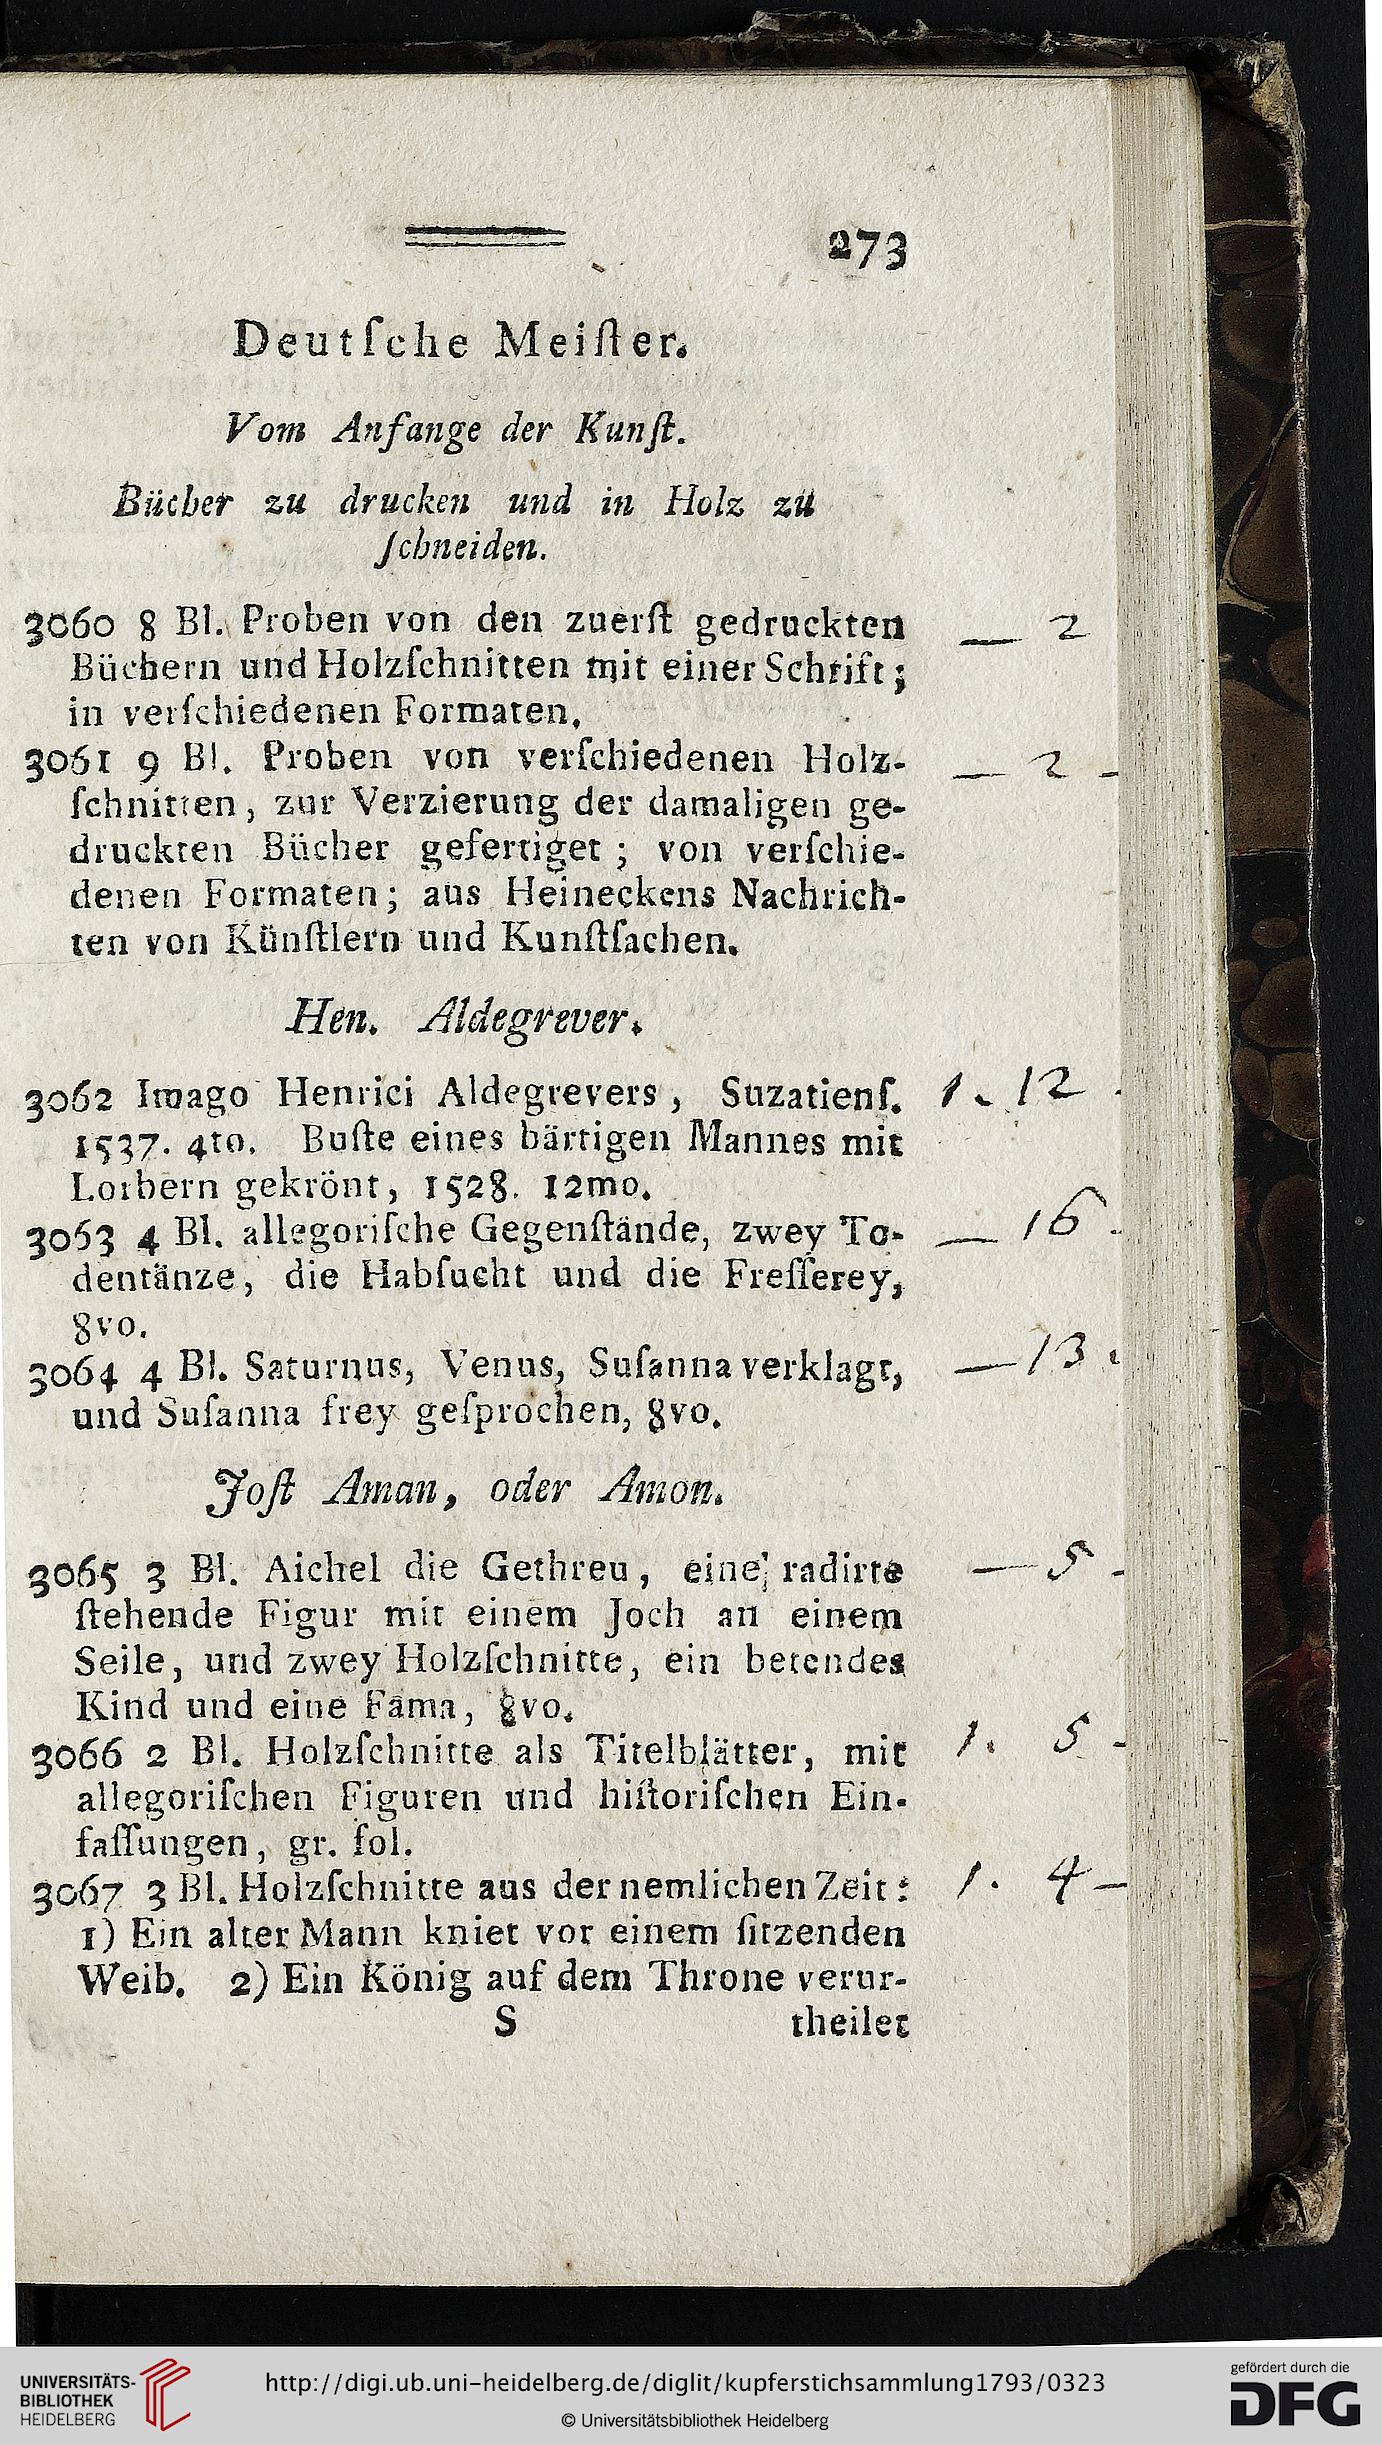 273
Deutſche Meiſter.
Vom Anfange der Kunſt.
Bücher zu drucken und in Holz zu
ſchneiden.
3060 8 Bl. Proben von den zuerſt gedruckten — 2
Büchern und Holzſchnitten mit einer Schrift;
in verſchiedenen Formaten.
3061 9 Bl. Proben von verſchiedenen Holz- — 2 -
ſchnitten, zur Verzierung der damaligen ge-
druckten Bücher gefertiget; von verſchie-
denen Formaten; aus Heineckens Nachrich-
ten von Künſtlern und Kunſtſachen.
Hen. Aldegrever.
3062 Imago Henrici Aldegrevers, Suzatienſ. 1. 12.
1537. 4to. Buſte eines bärtigen Mannes mit
Lorbern gekrönt, 1528. 12mo.
3063 4 Bl. allegoriſche Gegenſtände, zwey To- — 16.
dentänze, die Habſucht und die Freſſerey,
8vo.
3064 4 Bl. Saturnus, Venus, Suſanna verklagt, — 13.
und Suſanna frey geſprochen, 8vo.
Joſt Aman, oder Amon.
3065 3 Bl. Aichel die Gethreu, eine radirte — 5 -
ſtehende Figur mit einem Joch an einem
Seile, und zwey Holzſchnitte, ein betendes
Kind und eine Fama, 8vo.
3066 2 Bl. Holzſchnitte als Titelblätter, mit 1. 5 -
allegoriſchen Figuren und hiſtoriſchen Ein-
faſſungen, gr. fol.
3067 3 Bl. Holzſchnitte aus der nemlichen Zeit: 1. 4 -
1) Ein alter Mann kniet vor einem ſitzenden
Weib. 2) Ein König auf dem Throne verur-
S theilet
UNIVERSITÄTS-
BIBLIOTHEK
HEIDELBERG
http://digi.ub.uni-heidelberg.de/diglit/kupferstichsammlung1793/0323
© Universitätsbibliothek Heidelberg
gefördert durch die
DFG